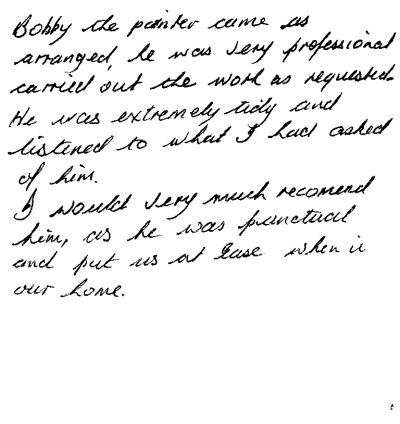 Bobby the painter came as
arranged, he was very professional
carried out the work as requested.
He was extremely tidy and
listened to what I had asked
of him.
I would very much recomend
him, as he was punctual
and put us at ease when i
our home.